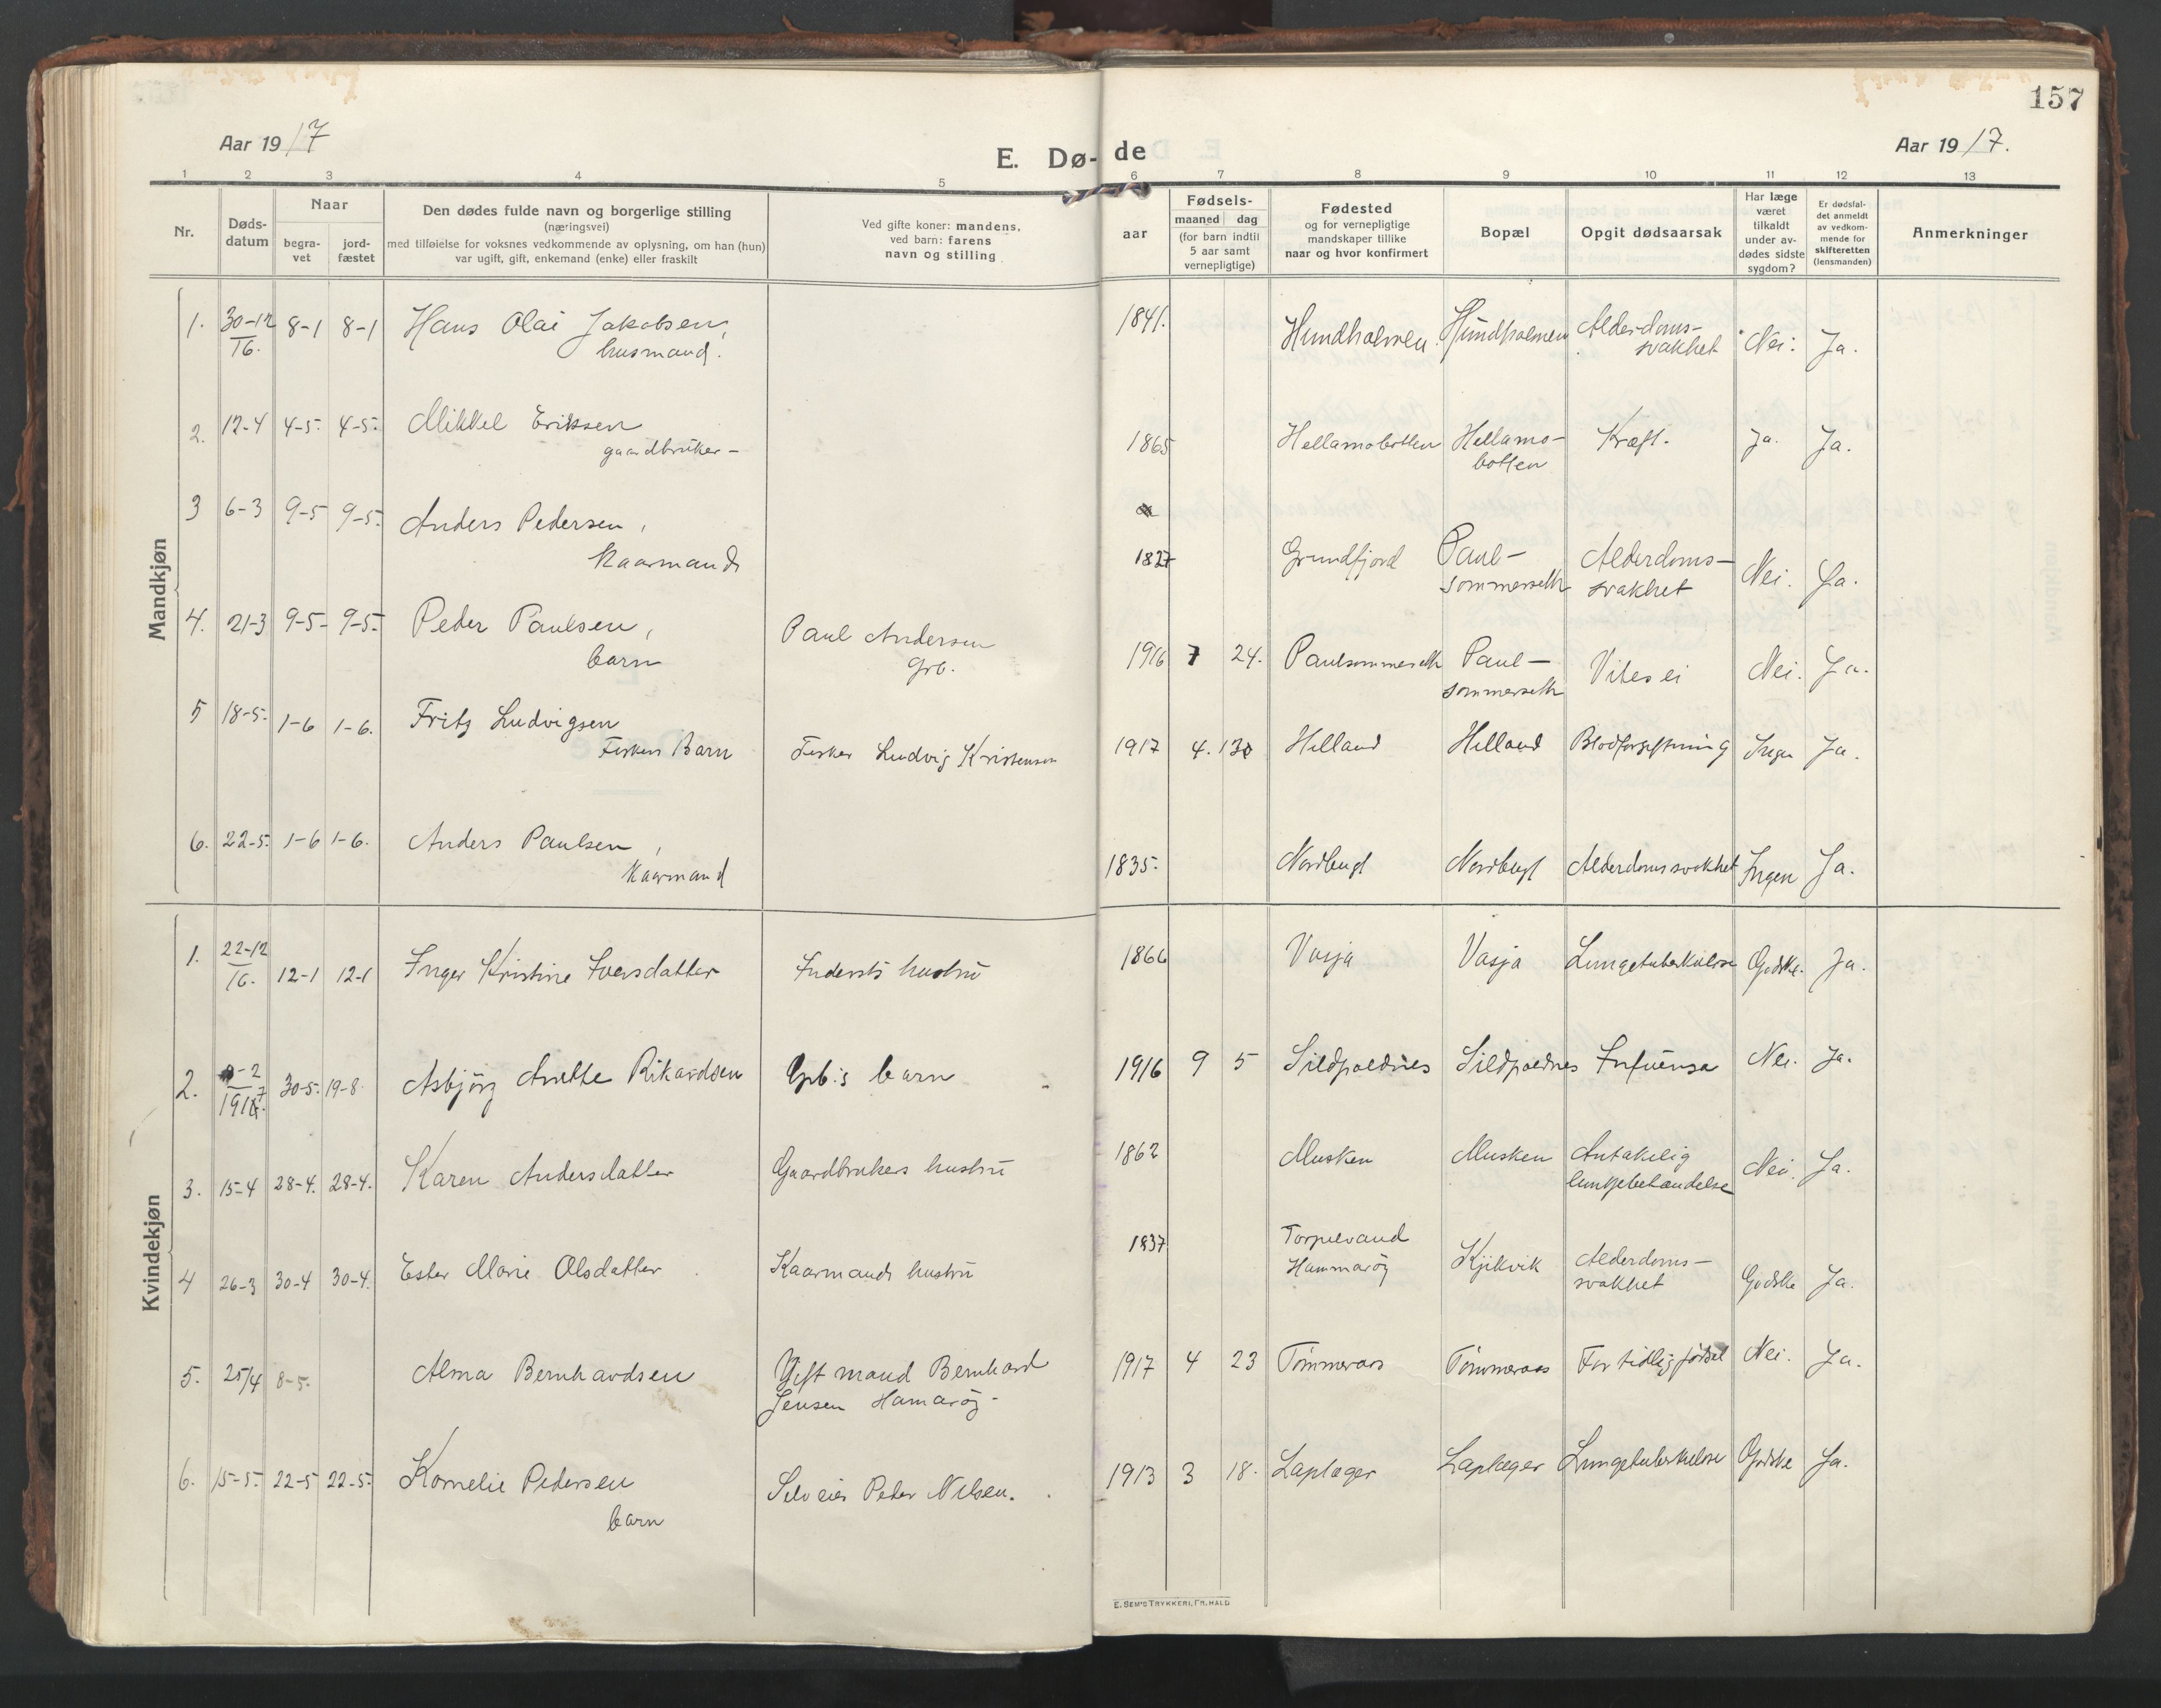 157
Aar 1917
E. Dø-de
Aar 1917.
1 2 3 4 5 6 7 8 9 10 11 12 13
Nr.
Døds-
datum
Naar
begra-
vet
jord-
fæstet
Den dødes fulde navn og borgerlige stilling
(næringsvei)
med tilføielse for voksnes vedkommende av oplysning, om han (hun)
var ugift, gift, enkemand (enke) eller fraskilt
Ved gifte koner: mandens,
ved barn: farens
navn og stilling
aar
Fødsels-
maaned dag
(for barn indtil
5 aar samt
vernepligtige)
Fødested
og for vernepligtige
mandskaper tillike
naar og hvor konfirmert
Bopæl
Opgit dødsaarsak
Har læge
været
tilkaldt
under av-
dødes sidste
sygdom?
Er dødsfal-
det anmeldt
av vedkom-
mende for
skifteretten
(lensmanden)
Anmerkninger
Mandkjøn
1. 30-12 8-1 8-1 Hans Olai Jakobsen, 1841. Hundholmen Hundholmen Alderdoms- Nei. Ja.
16. husmand. svakhet
2. 12-4 4-5. 4-5. Mikkel Eriksen 1865 Hellamobotten Hellamo- Kræft. Ja. Ja.
gaardbruker- botten
3 6-3 9-5 9-5. Anders Pedersen, 1827 Grundfjord Paul- Alderdoms- Nei. Ja.
Kaarmand sommerseth svakhet
4. 21-3 9-5- 9-5. Peder Paulsen, Paul Andersen 1916 7 24. Paulsommerseth Paul- Vites ei Nei. Ja.
barn Grb. sommerseth
5 18-5. 1-6 1-6. Fritz Ludvigsen 1917 4. 130 Helland Helland Blodforgiftning Ingen Ja.
Fiskers Barn Fisker Ludvig Kristensen
6. 22-5. 1-6 1-6. Anders Paulsen, 1835. Nordbugt Nordbugt Alderdomssvakhet Ingen Ja.
Kaarmand
Kvindekjøn
1. 22-12 12-1 12-1 Inger Kristine Iversdatter Indersts hustru 1866 Vasja Vasja Lungetuberkulose Godske. Ja.
16.
2. 9-2 30-5. 19-8. Asbjørg Anette Rikardsen Grb.s barn 1916 9 5 Sildpoldnes Sildpoldnes Infuensa Nei. Ja.
1917.
3. 15-4 28-4. 28-4. Karen Andersdatter Gaardbrukers hustru 1862 Musken Musken Antakelig Nei. Ja.
lungebetændelse
4 26-3 30-4 30-4. Ester Marie Olsdatter Kaarmands hustru 1837 Torpelvand Kjikvik Alderdoms- Godske Ja.
Hammarøy svakhet
5. 25/4 8-5. Alma Bernhardsen Gift mand Bernhard 1917 4 23 Tømmeraas Tømmeraas For tidlig fødsel Nei. Ja.
Jensen Hamarøy-
6. 15-5. 22-5 22-5. Kornelie Pedersen Selveier Peder Nilsen. 1913 3 18. Laplæger Laplæger Lungetuberkulose Godske Ja.
barn
E. SEM'S TRYKKERI, FR.HALD